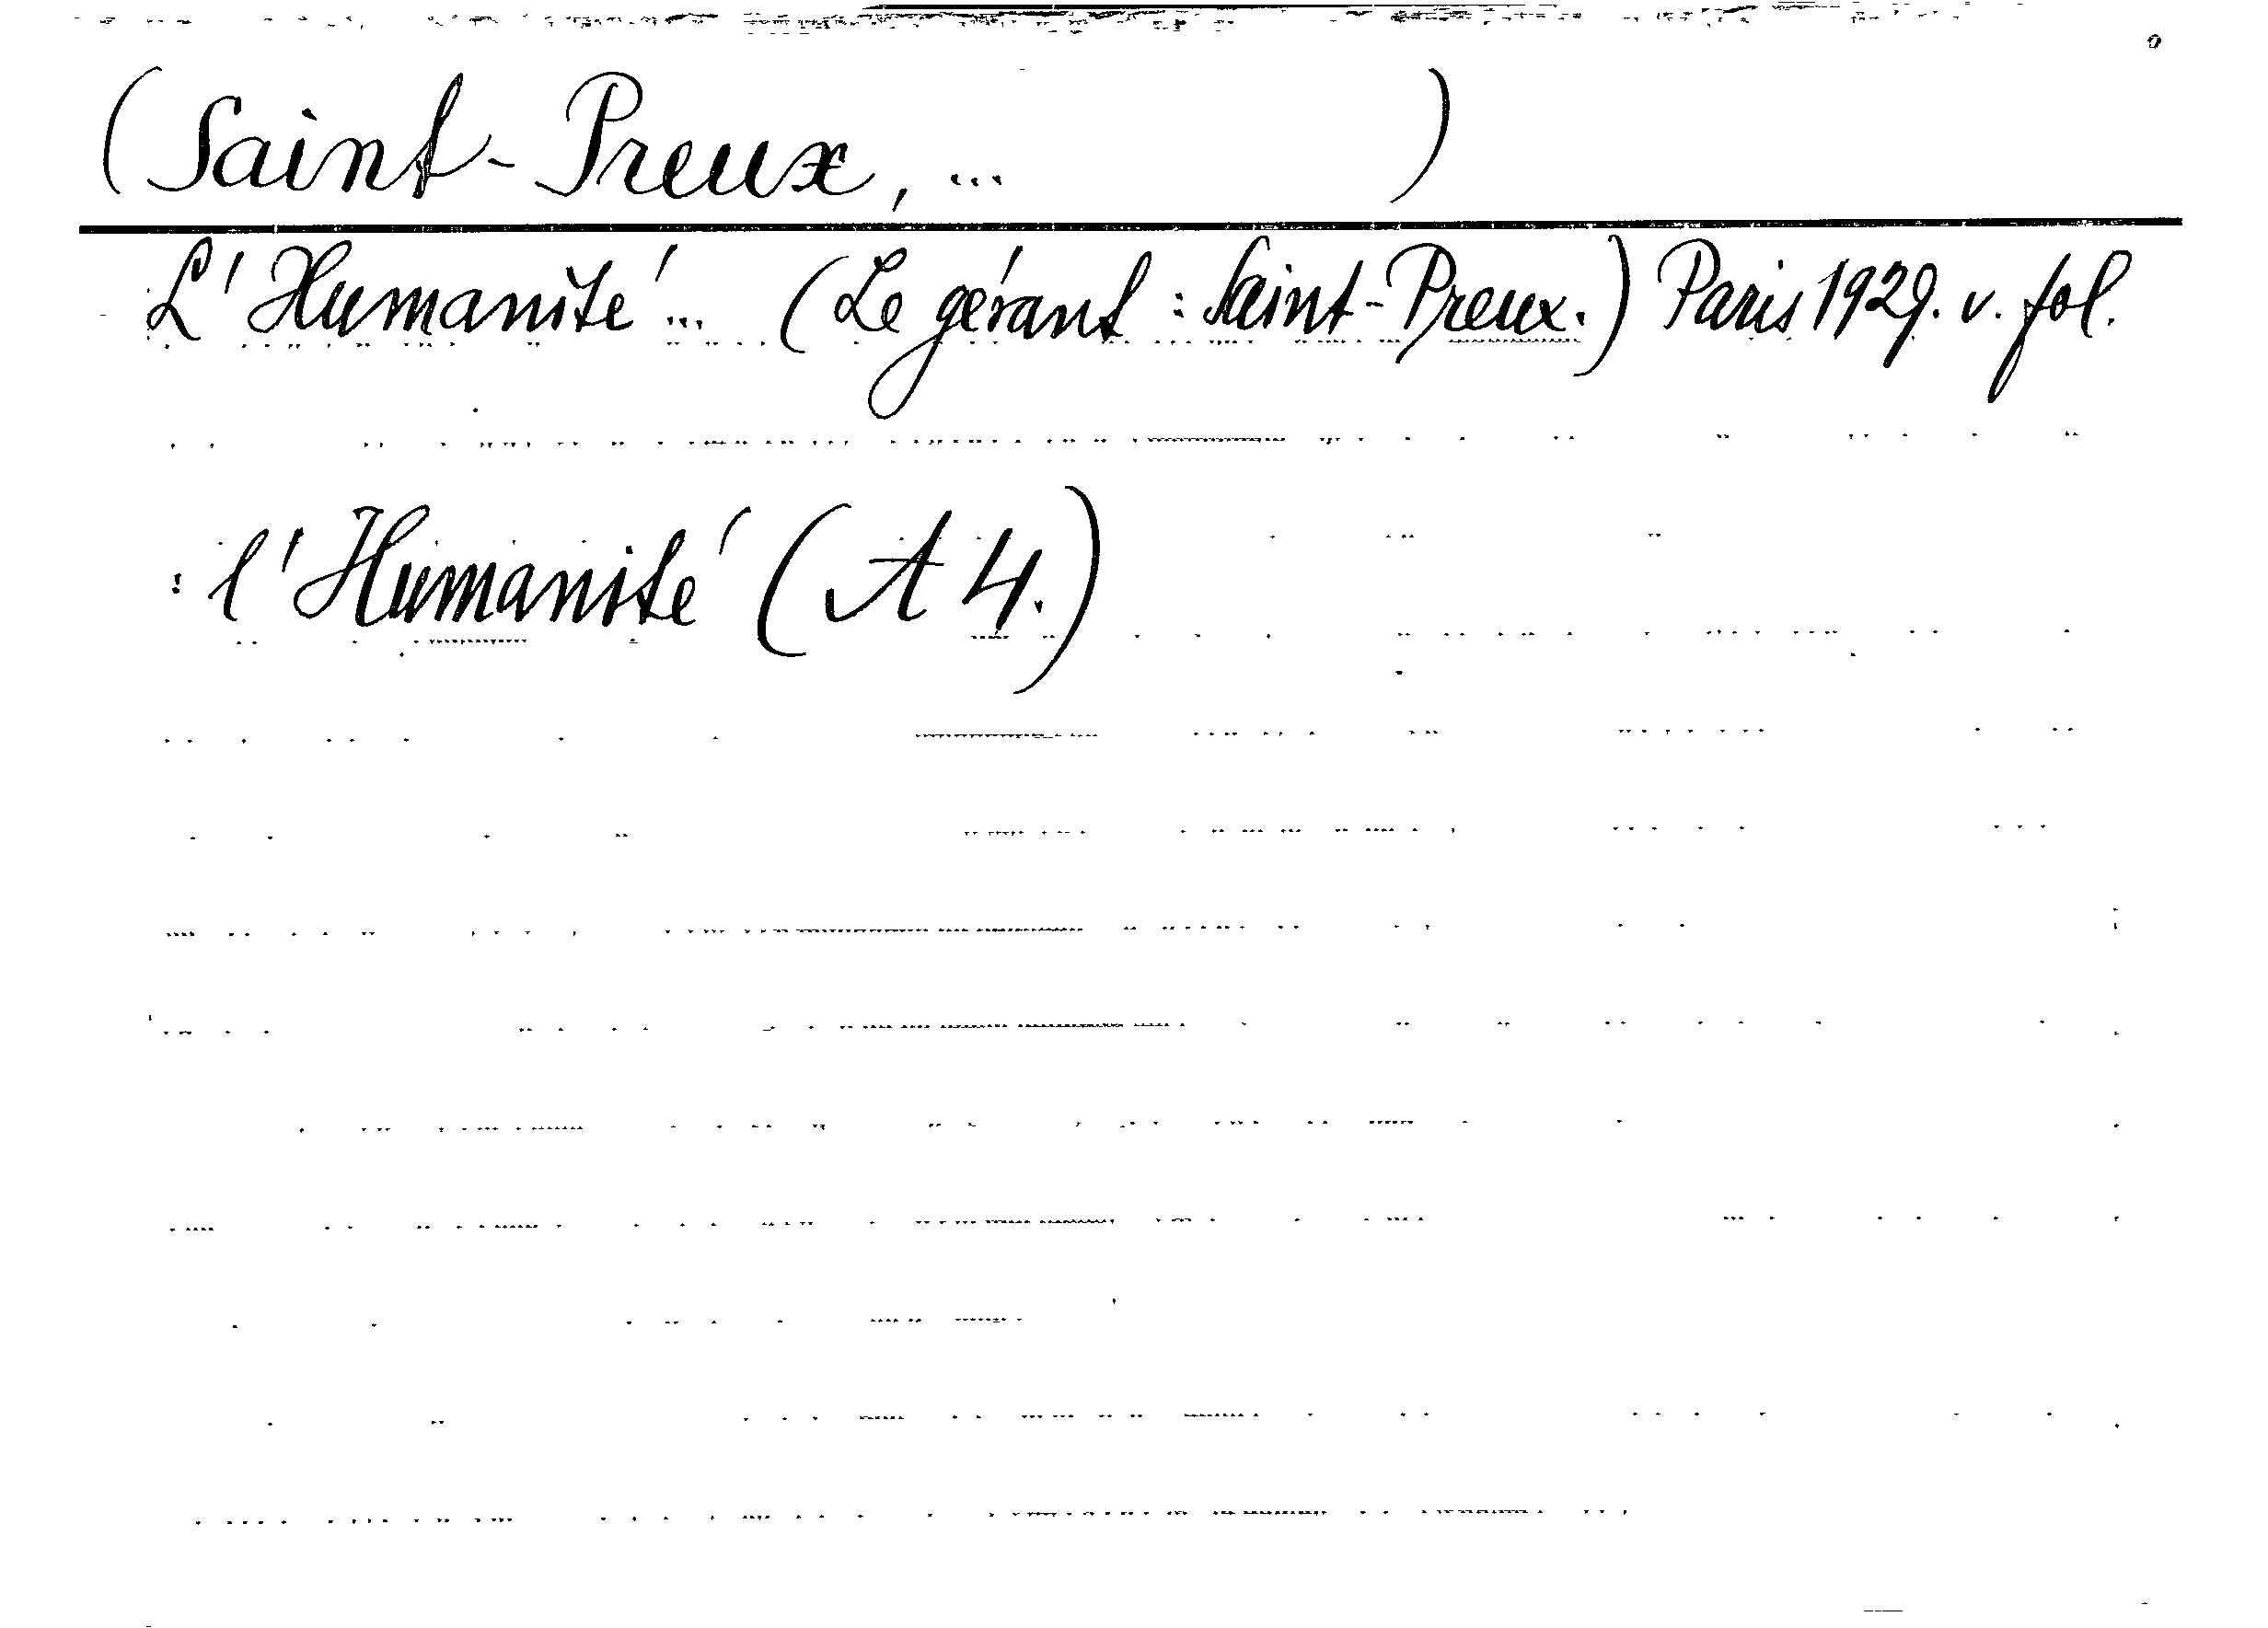 (Saint-Preux, ... )
L'Humanité ... (Le gérant : Saint-Preux.) Paris 1929. v. fol.
: l'Humanité (A 4.)